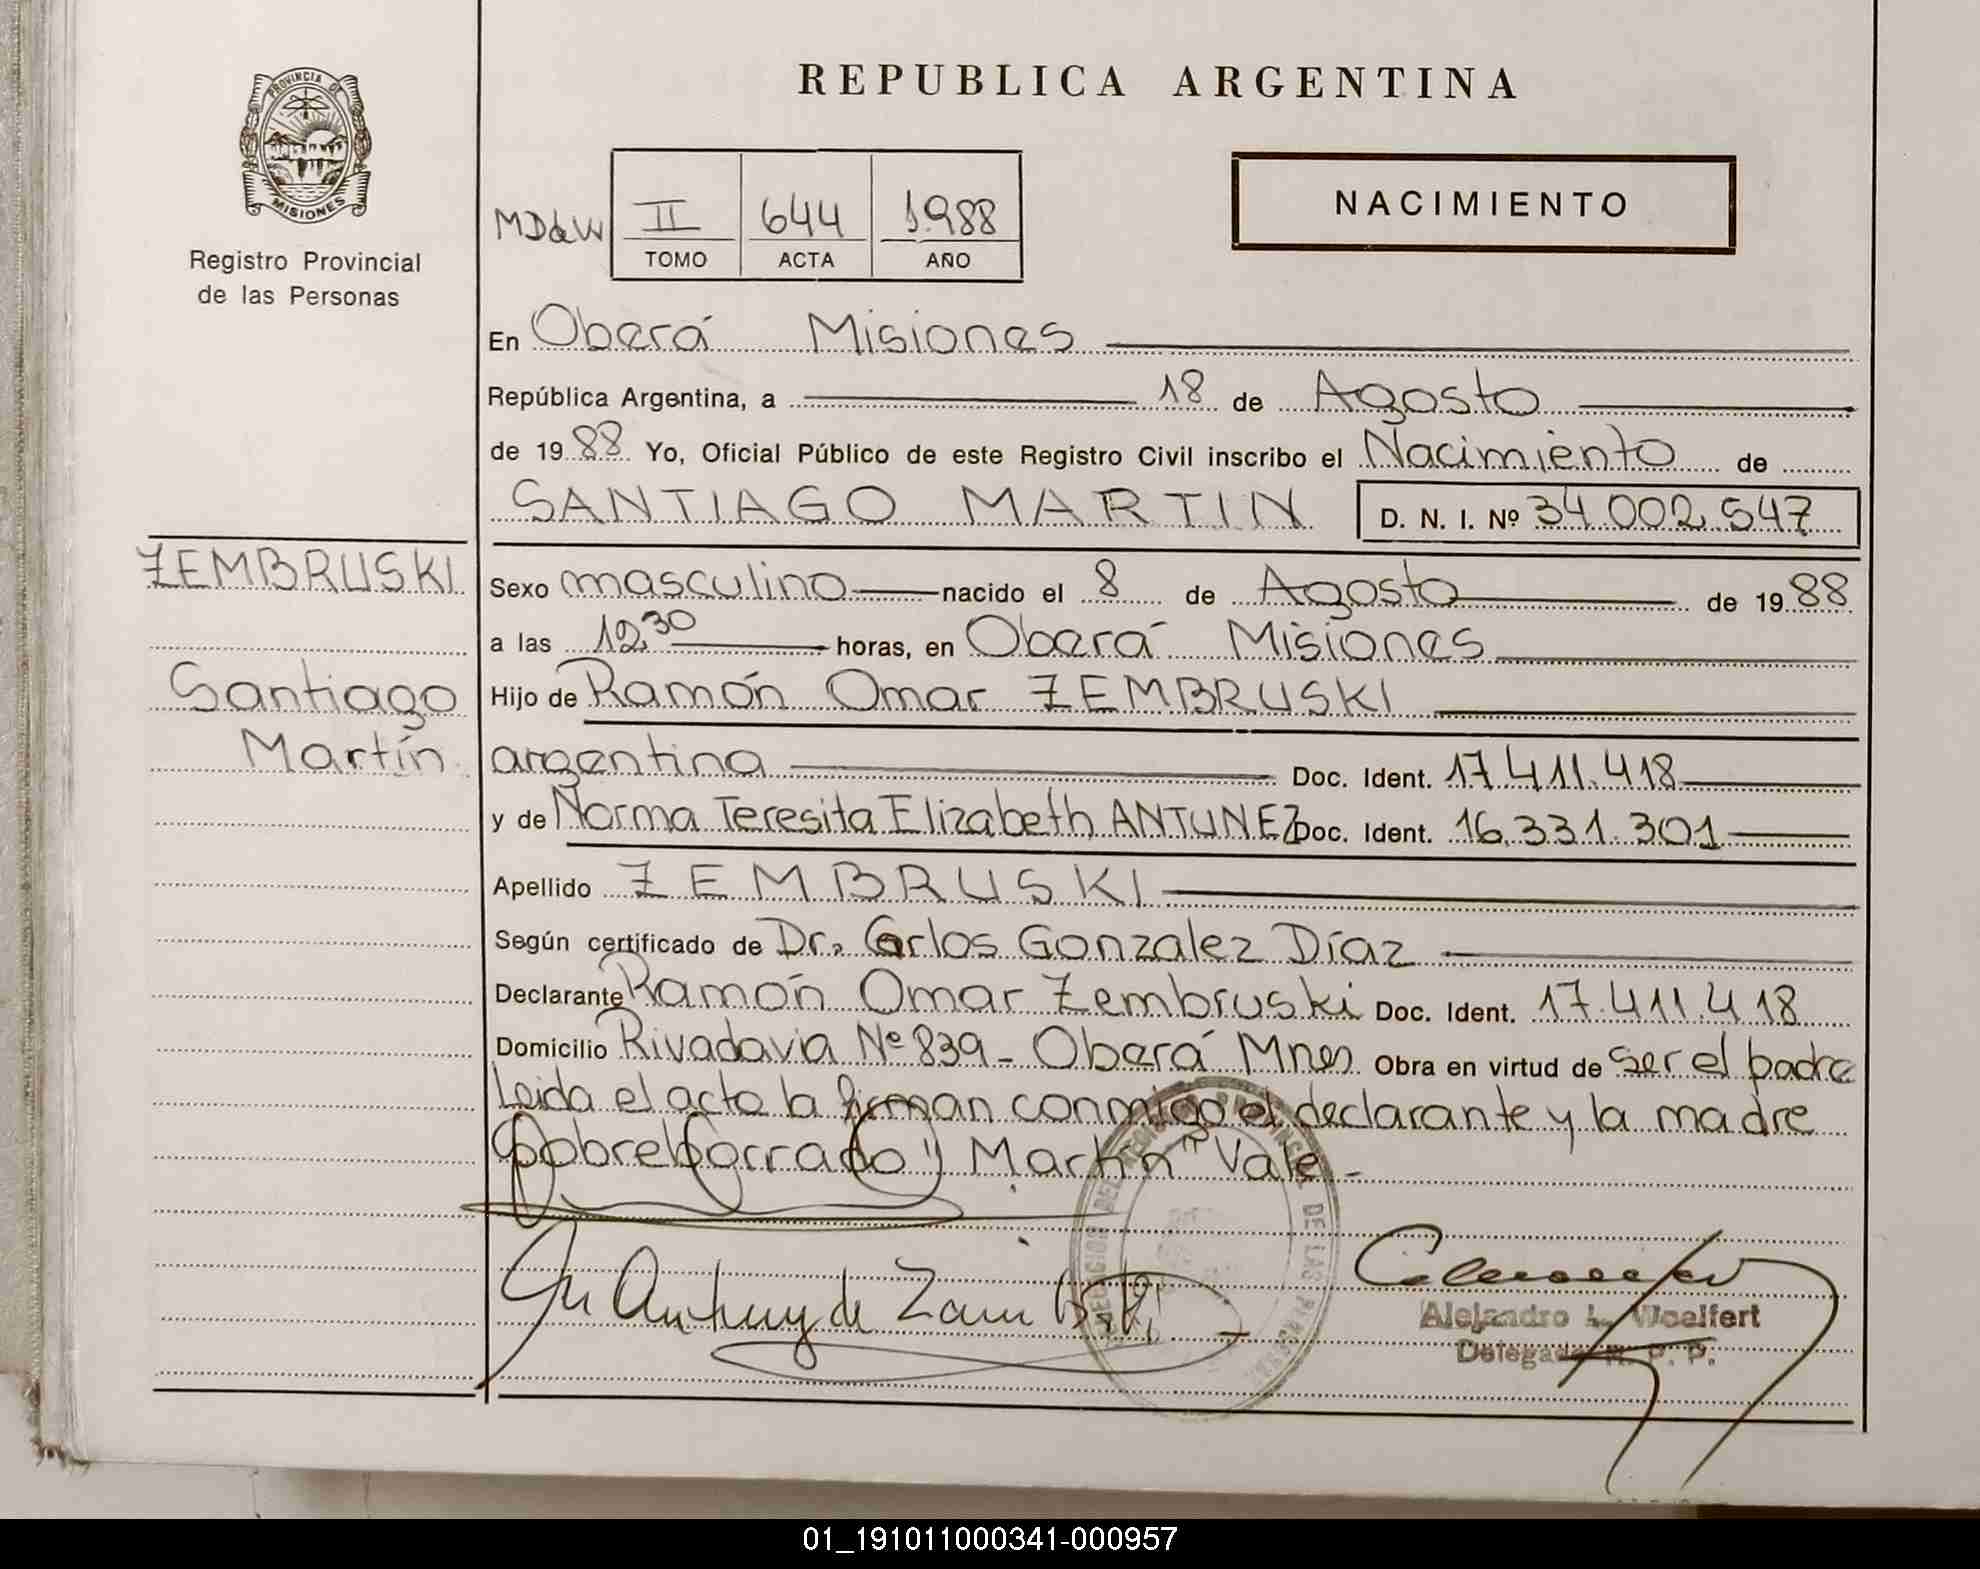 REPUBLICA ARGENTINA
PROVINCIA DE
MISIONES
Registro Provincial
de las Personas
MDdeW
II 644 1.988
TOMO ACTA AÑO
NACIMIENTO
En Oberá Misiones
República Argentina, a 18 de Agosto
de 1988 Yo, Oficial Público de este Registro Civil inscribo el Nacimiento de
SANTIAGO MARTIN D. N. I. Nº 34.002.547
ZEMBRUSKI
Santiago
Martín
Sexo masculino nacido el 8 de Agosto de 1988
a las 12,30 horas, en Oberá Misiones
Hijo de Ramón Omar ZEMBRUSKI
argentina Doc. Ident. 17.411.418
y de Norma Teresita Elizabeth ANTUNEZ Doc. Ident. 16.331.301
Apellido ZEMBRUSKI
Según certificado de Dr. Carlos Gonzalez Díaz
Declarante Ramón Omar Zembruski Doc. Ident. 17.411.418
Domicilio Rivadavia Nº 839 - Oberá Mnes Obra en virtud de ser el padre
Leida el acta la firman conmigo el declarante y la madre
Sobreborrado "Martín" Vale -
Antunez de
Alejandro L. Woelfert
Delegado R. P. P.
DE LAS PERSONAS
01_191011000341-000957